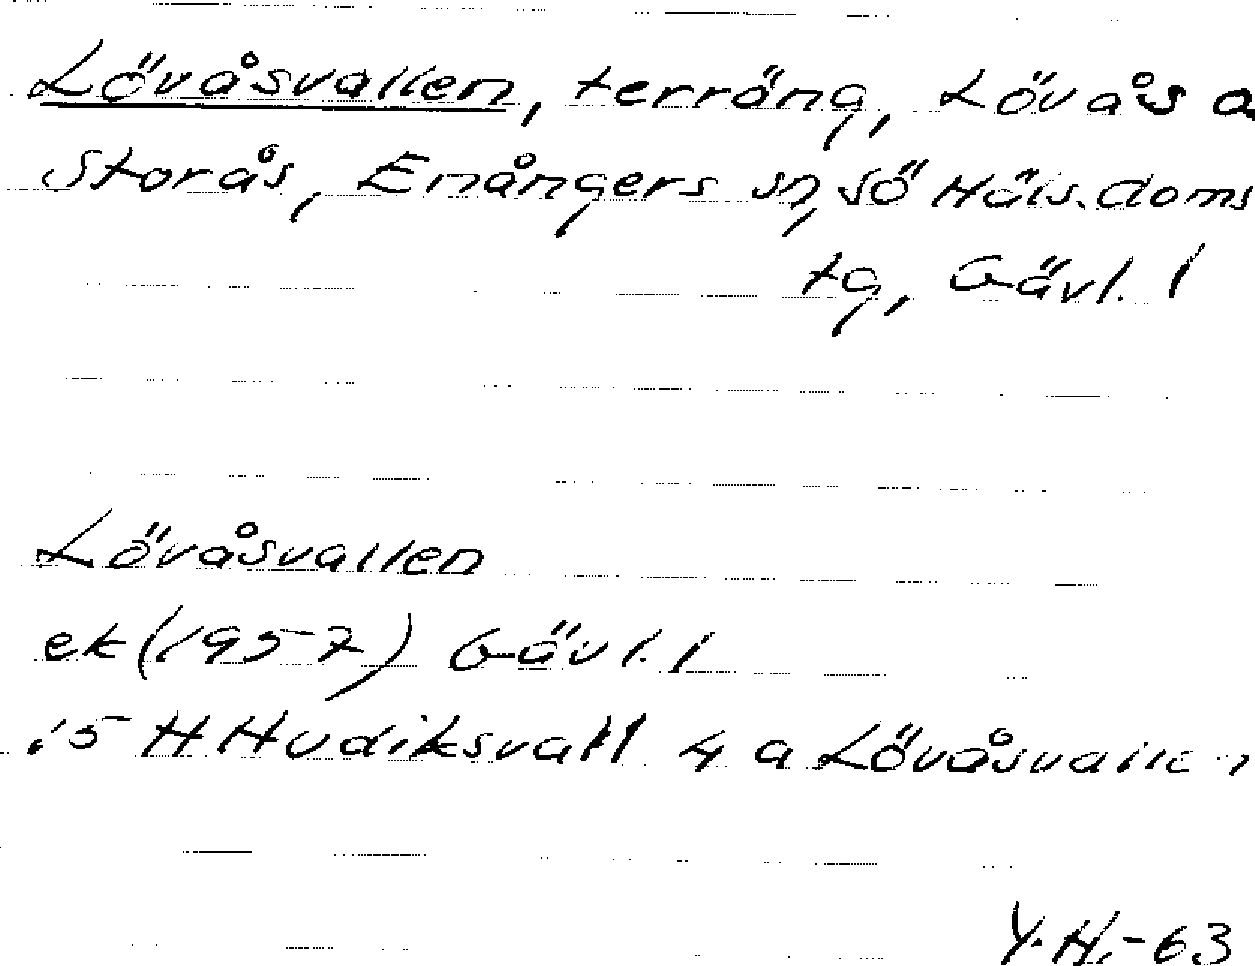 Lövåsvallen, terräng, Lövås a
Storås, Enångers sn, Sö Häls. doms
tg, Gävl. l
Lövåsvallen
ek (1957) Gävl. l
15 H Hudiksvall 4 a Lövåsvallen
Y.H.-63